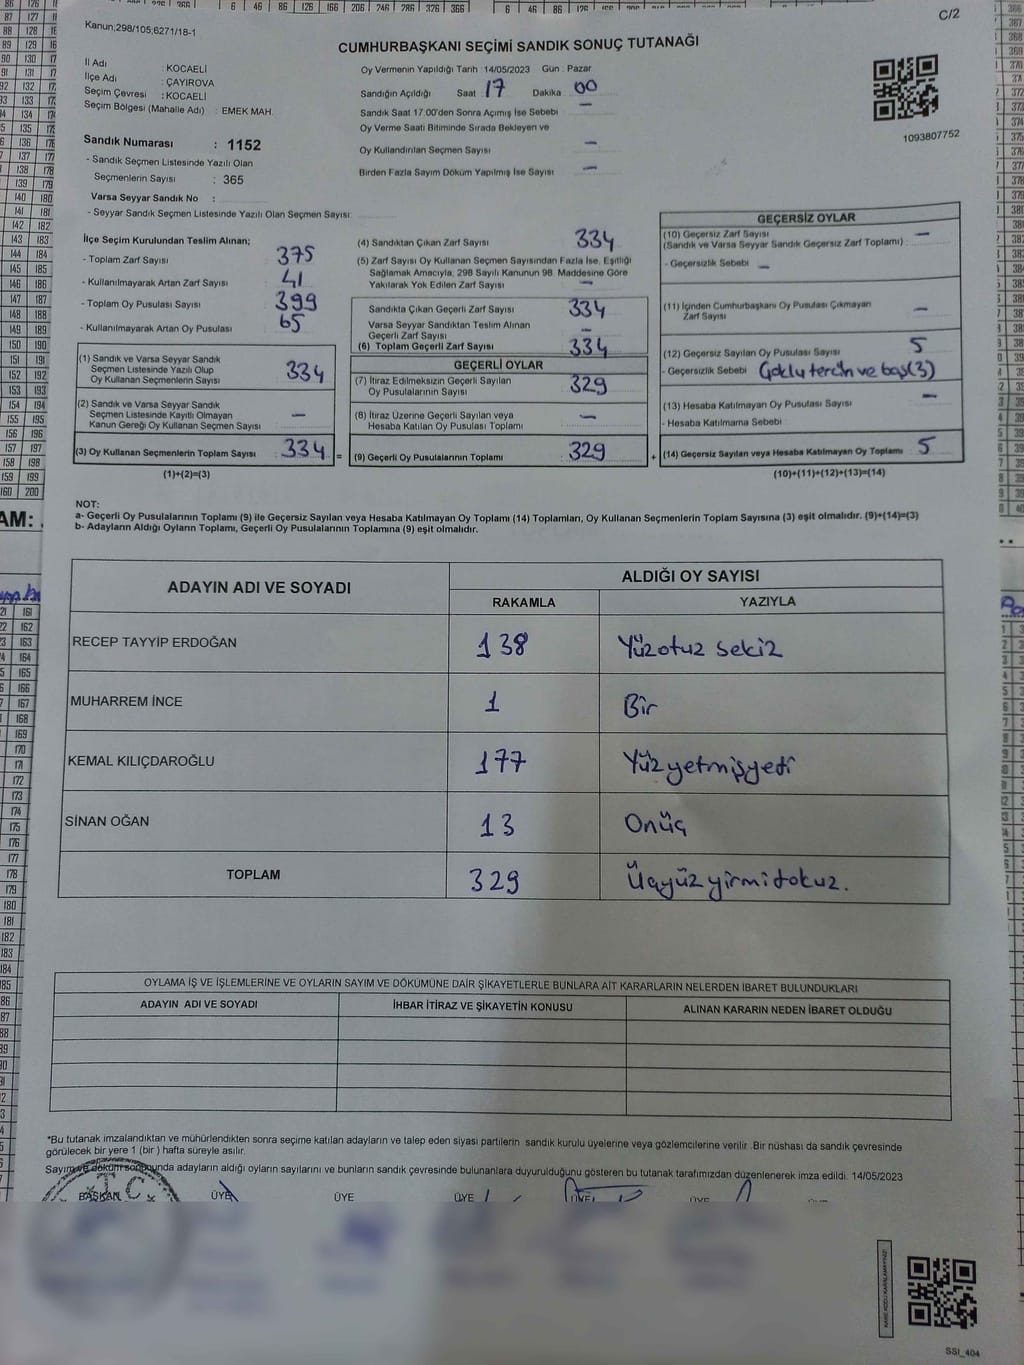 C/2
Kanun;298/105;6271/18-1
CUMHURBAŞKANI SEÇİMİ SANDIK SONUÇ TUTANAĞI
İl Adı : KOCAELİ
İlçe Adı : ÇAYIROVA
Seçim Çevresi : KOCAELİ
Seçim Bölgesi (Mahalle Adı) : EMEK MAH.
Sandık Numarası : 1152
- Sandık Seçmen Listesinde Yazılı Olan
Seçmenlerin Sayısı : 365
Varsa Seyyar Sandık No :
- Seyyar Sandık Seçmen Listesinde Yazılı Olan Seçmen Sayısı:
Oy Vermenin Yapıldığı Tarih 14/05/2023 Gün : Pazar
Sandığın Açıldığı Saat 17 Dakika 00
Sandık Saat 17.00'den Sonra Açımış İse Sebebi —
Oy Verme Saati Bitiminde Sırada Bekleyen ve
Oy Kullandırılan Seçmen Sayısı —
Birden Fazla Sayım Döküm Yapılmış İse Sayısı —
1093807752
İlçe Seçim Kurulundan Teslim Alınan;
- Toplam Zarf Sayısı : 375
- Kullanılmayarak Artan Zarf Sayısı : 41
- Toplam Oy Pusulası Sayısı : 399
- Kullanılmayarak Artan Oy Pusulası : 65
(1) Sandık ve Varsa Seyyar Sandık
Seçmen Listesinde Yazılı Olup
Oy Kullanan Seçmenlerin Sayısı : 334
(2) Sandık ve Varsa Seyyar Sandık
Seçmen Listesinde Kayıtlı Olmayan
Kanun Gereği Oy Kullanan Seçmen Sayısı : —
(3) Oy Kullanan Seçmenlerin Toplam Sayısı : 334 =
(1)+(2)=(3)
(4) Sandıktan Çıkan Zarf Sayısı : 334
(5) Zarf Sayısı Oy Kullanan Seçmen Sayısından Fazla İse, Eşitliği
Sağlamak Amacıyla, 298 Sayılı Kanunun 98. Maddesine Göre
Yakılarak Yok Edilen Zarf Sayısı : —
Sandıkta Çıkan Geçerli Zarf Sayısı : 334
Varsa Seyyar Sandıktan Teslim Alınan
Geçerli Zarf Sayısı : —
(6) Toplam Geçerli Zarf Sayısı : 334
GEÇERLİ OYLAR
(7) İtiraz Edilmeksizin Geçerli Sayılan
Oy Pusulalarının Sayısı : 329
(8) İtiraz Üzerine Geçerli Sayılan veya
Hesaba Katılan Oy Pusulası Toplamı : —
(9) Geçerli Oy Pusulalarının Toplamı : 329 +
GEÇERSİZ OYLAR
(10) Geçersiz Zarf Sayısı : —
(Sandık ve Varsa Seyyar Sandık Geçersiz Zarf Toplamı)
- Geçersizlik Sebebi : —
(11) İçinden Cumhurbaşkanı Oy Pusulası Çıkmayan
Zarf Sayısı : —
(12) Geçersiz Sayılan Oy Pusulası Sayısı : 5
- Geçersizlik Sebebi : Çoklu tercih ve boş(3)
(13) Hesaba Katılmayan Oy Pusulası Sayısı : —
- Hesaba Katılmama Sebebi :
(14) Geçersiz Sayılan veya Hesaba Katılmayan Oy Toplamı : 5
(10)+(11)+(12)+(13)=(14)
NOT:
a- Geçerli Oy Pusulalarının Toplamı (9) ile Geçersiz Sayılan veya Hesaba Katılmayan Oy Toplamı (14) Toplamları, Oy Kullanan Seçmenlerin Toplam Sayısına (3) eşit olmalıdır. (9)+(14)=(3)
b- Adayların Aldığı Oyların Toplamı, Geçerli Oy Pusulalarının Toplamına (9) eşit olmalıdır.
ADAYIN ADI VE SOYADI
ALDIĞI OY SAYISI
RAKAMLA YAZIYLA
RECEP TAYYİP ERDOĞAN 138 Yüzotuz sekiz
MUHARREM İNCE 1 Bir
KEMAL KILIÇDAROĞLU 177 Yüzyetmişyedi
SİNAN OĞAN 13 Onüç
TOPLAM 329 Üçyüzyirmidokuz.
OYLAMA İŞ VE İŞLEMLERİNE VE OYLARIN SAYIM VE DÖKÜMÜNE DAİR ŞİKAYETLERLE BUNLARA AİT KARARLARIN NELERDEN İBARET BULUNDUKLARI
ADAYIN ADI VE SOYADI İHBAR İTİRAZ VE ŞİKAYETİN KONUSU ALINAN KARARIN NEDEN İBARET OLDUĞU
*Bu tutanak imzalandıktan ve mühürlendikten sonra seçime katılan adayların ve talep eden siyasi partilerin sandık kurulu üyelerine veya gözlemcilerine verilir. Bir nüshası da sandık çevresinde
görülecek bir yere 1 (bir ) hafta süreyle asılır.
Sayım ve döküm sonunda adayların aldığı oyların sayılarını ve bunların sandık çevresinde bulunanlara duyurulduğunu gösteren bu tutanak tarafımızdan düzenlenerek imza edildi. 14/05/2023
T.C.
BAŞKAN ÜYE ÜYE ÜYE ÜYE ÜYE
SSI_404